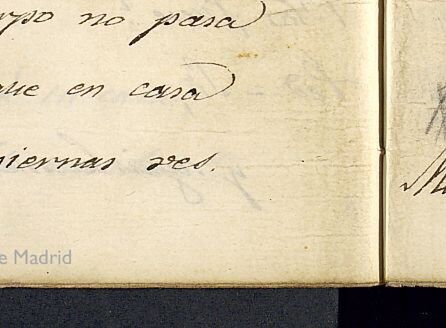 no pasa
que en casa
piernas ves.
e Madrid